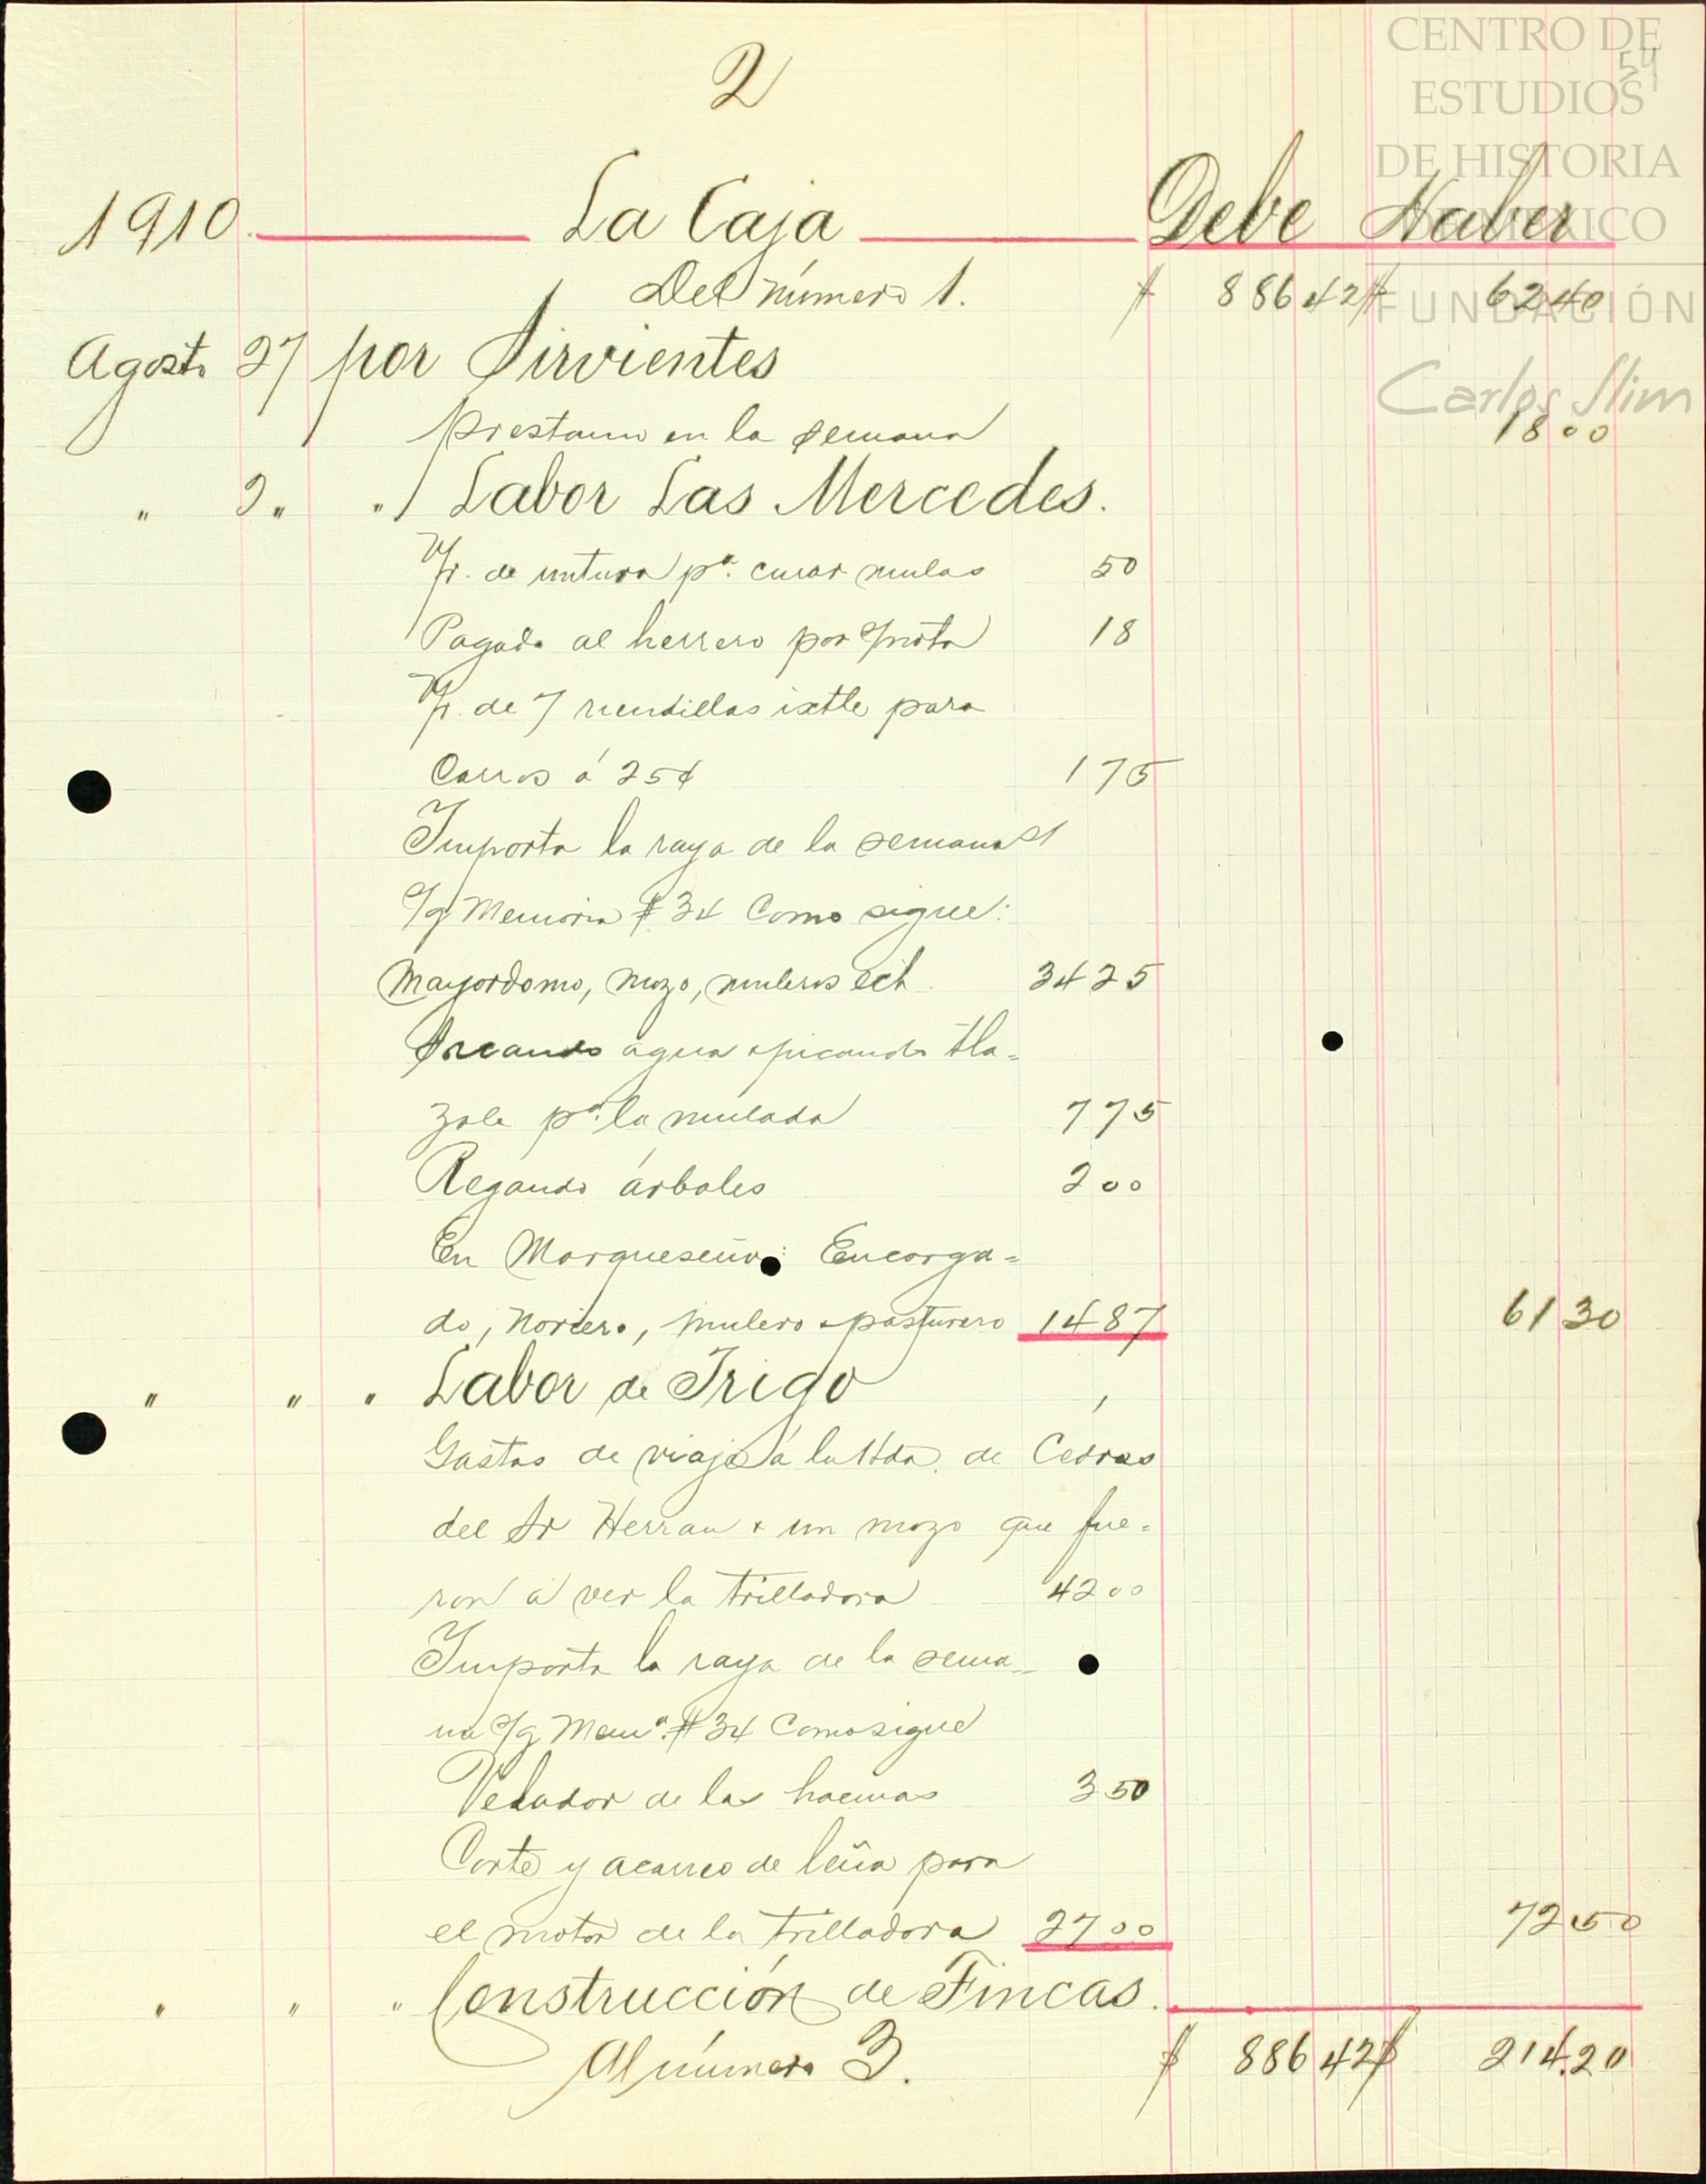 2
54
CENTRO DE
ESTUDIOS
DE HISTORIA
DE MÉXICO
FUNDACIÓN
Carlos Slim
1910. La Caja Debe Haber
Del número 1. $ 886 42 $ 62 40
Agosto 27 por Sirvientes
Prestamo en la semana 18 00
" 2 " " / Labor Las Mercedes.
Vr. de untura pa. curar mulas 50
Pagado al herrero por nota 18
Vr. de 7 riendillas ixtle para
Carros á 25¢ 1 75
Importa la raya de la semana
S/g Memoria # 34 Como sigue:
Mayordomo, mozo, muleros ect. 34 25
Sacando agua y picando tla=
zole pa. la mulada 7 75
Regando árboles 2 00
En Marqueseño: Encarga=
do, Noriero, mulero y pasturero 14 87 61 30
" " " Labor de Trigo
Gastos de viaje á la Hda. de Cedros
del Sr Herran y un mozo que fue=
ron á ver la trilladora 42 00
Importa la raya de la sema=
na S/g Mema. # 34 Como sigue
Velador de las haeinas 3 50
Corte y acarreo de leña para
el motor de la trilladora 27 00 72 50
" " " Construcción de Fincas.
Al número 3. $ 886 42 $ 214.20